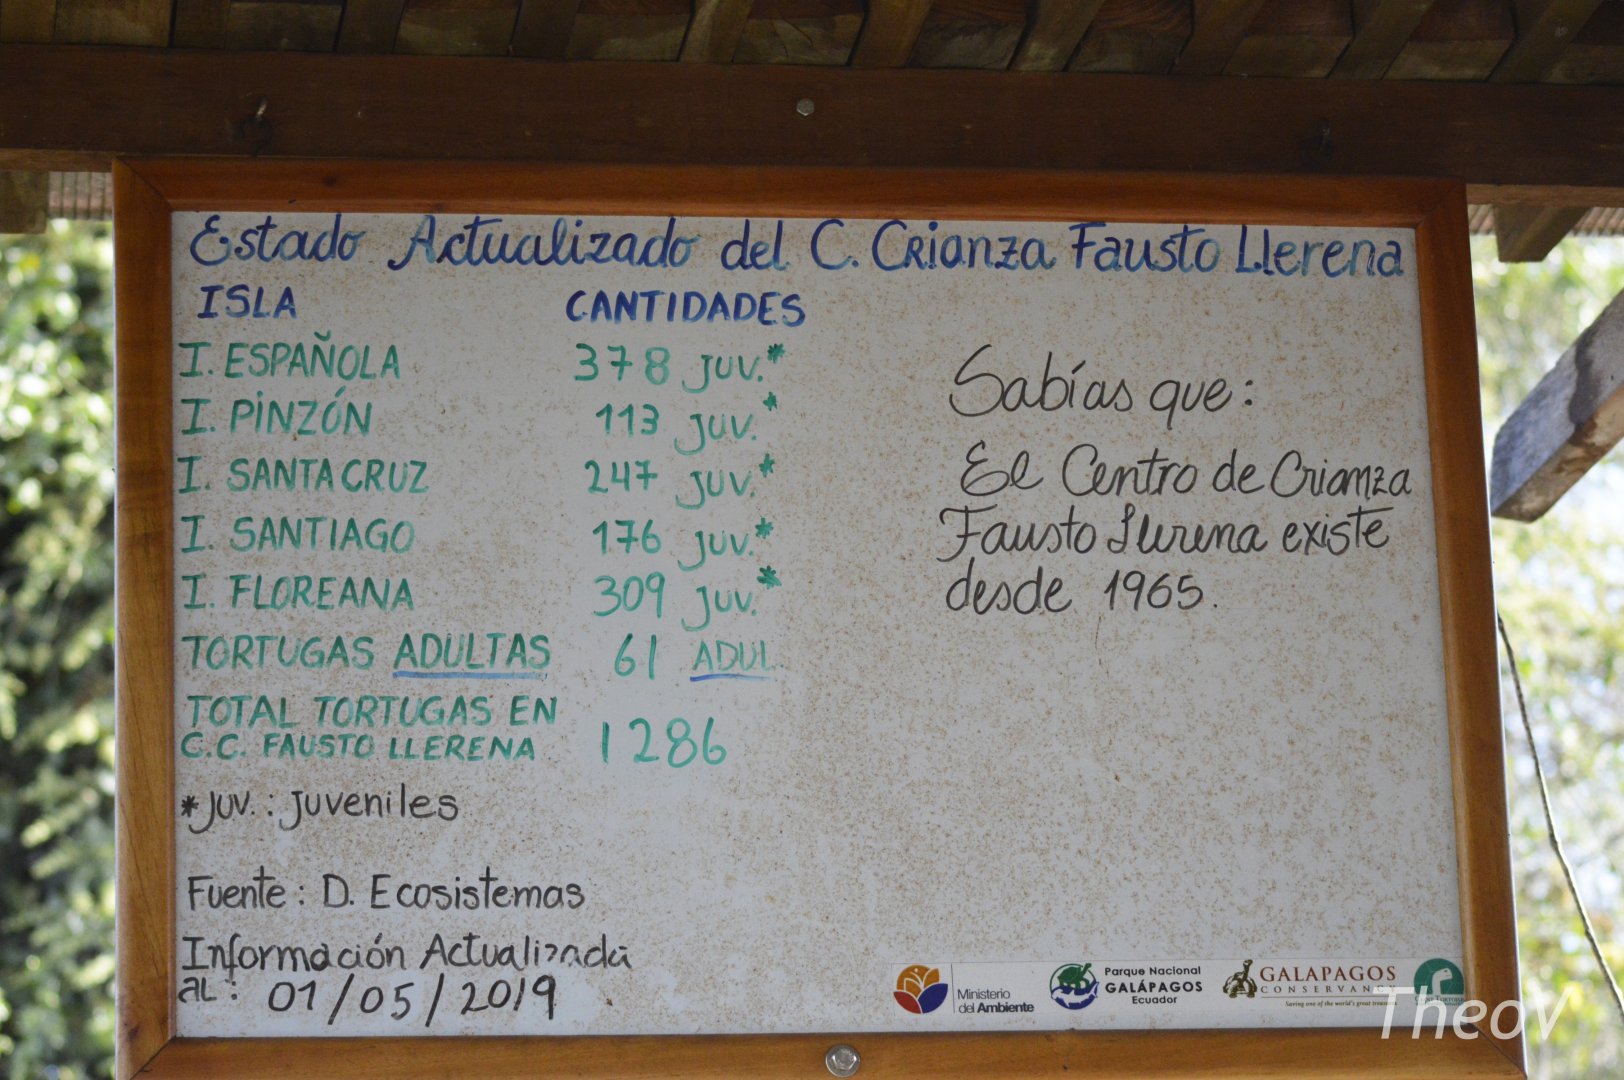 Estado Actualizado del C. Crianza Fausto Llerena
ISLA CANTIDADES
I. ESPAÑOLA 378 juv.*
I. PINZÓN 113 juv.*
I. SANTA CRUZ 247 juv.*
I. SANTIAGO 176 juv.*
I. FLOREANA 309 juv.*
TORTUGAS ADULTAS 61 ADUL
TOTAL TORTUGAS EN
C.C. FAUSTO LLERENA 1286
*juv.: juveniles
Fuente: D. Ecosistemas
Información Actualizada
al: 01/05/2019
Sabías que:
El Centro de Crianza
Fausto Llerena existe
desde 1965.
Ministerio
del Ambiente
Parque Nacional
GALÁPAGOS
Ecuador
GALAPAGOS
CONSERVANCY
Saving one of the world's great
TheoV